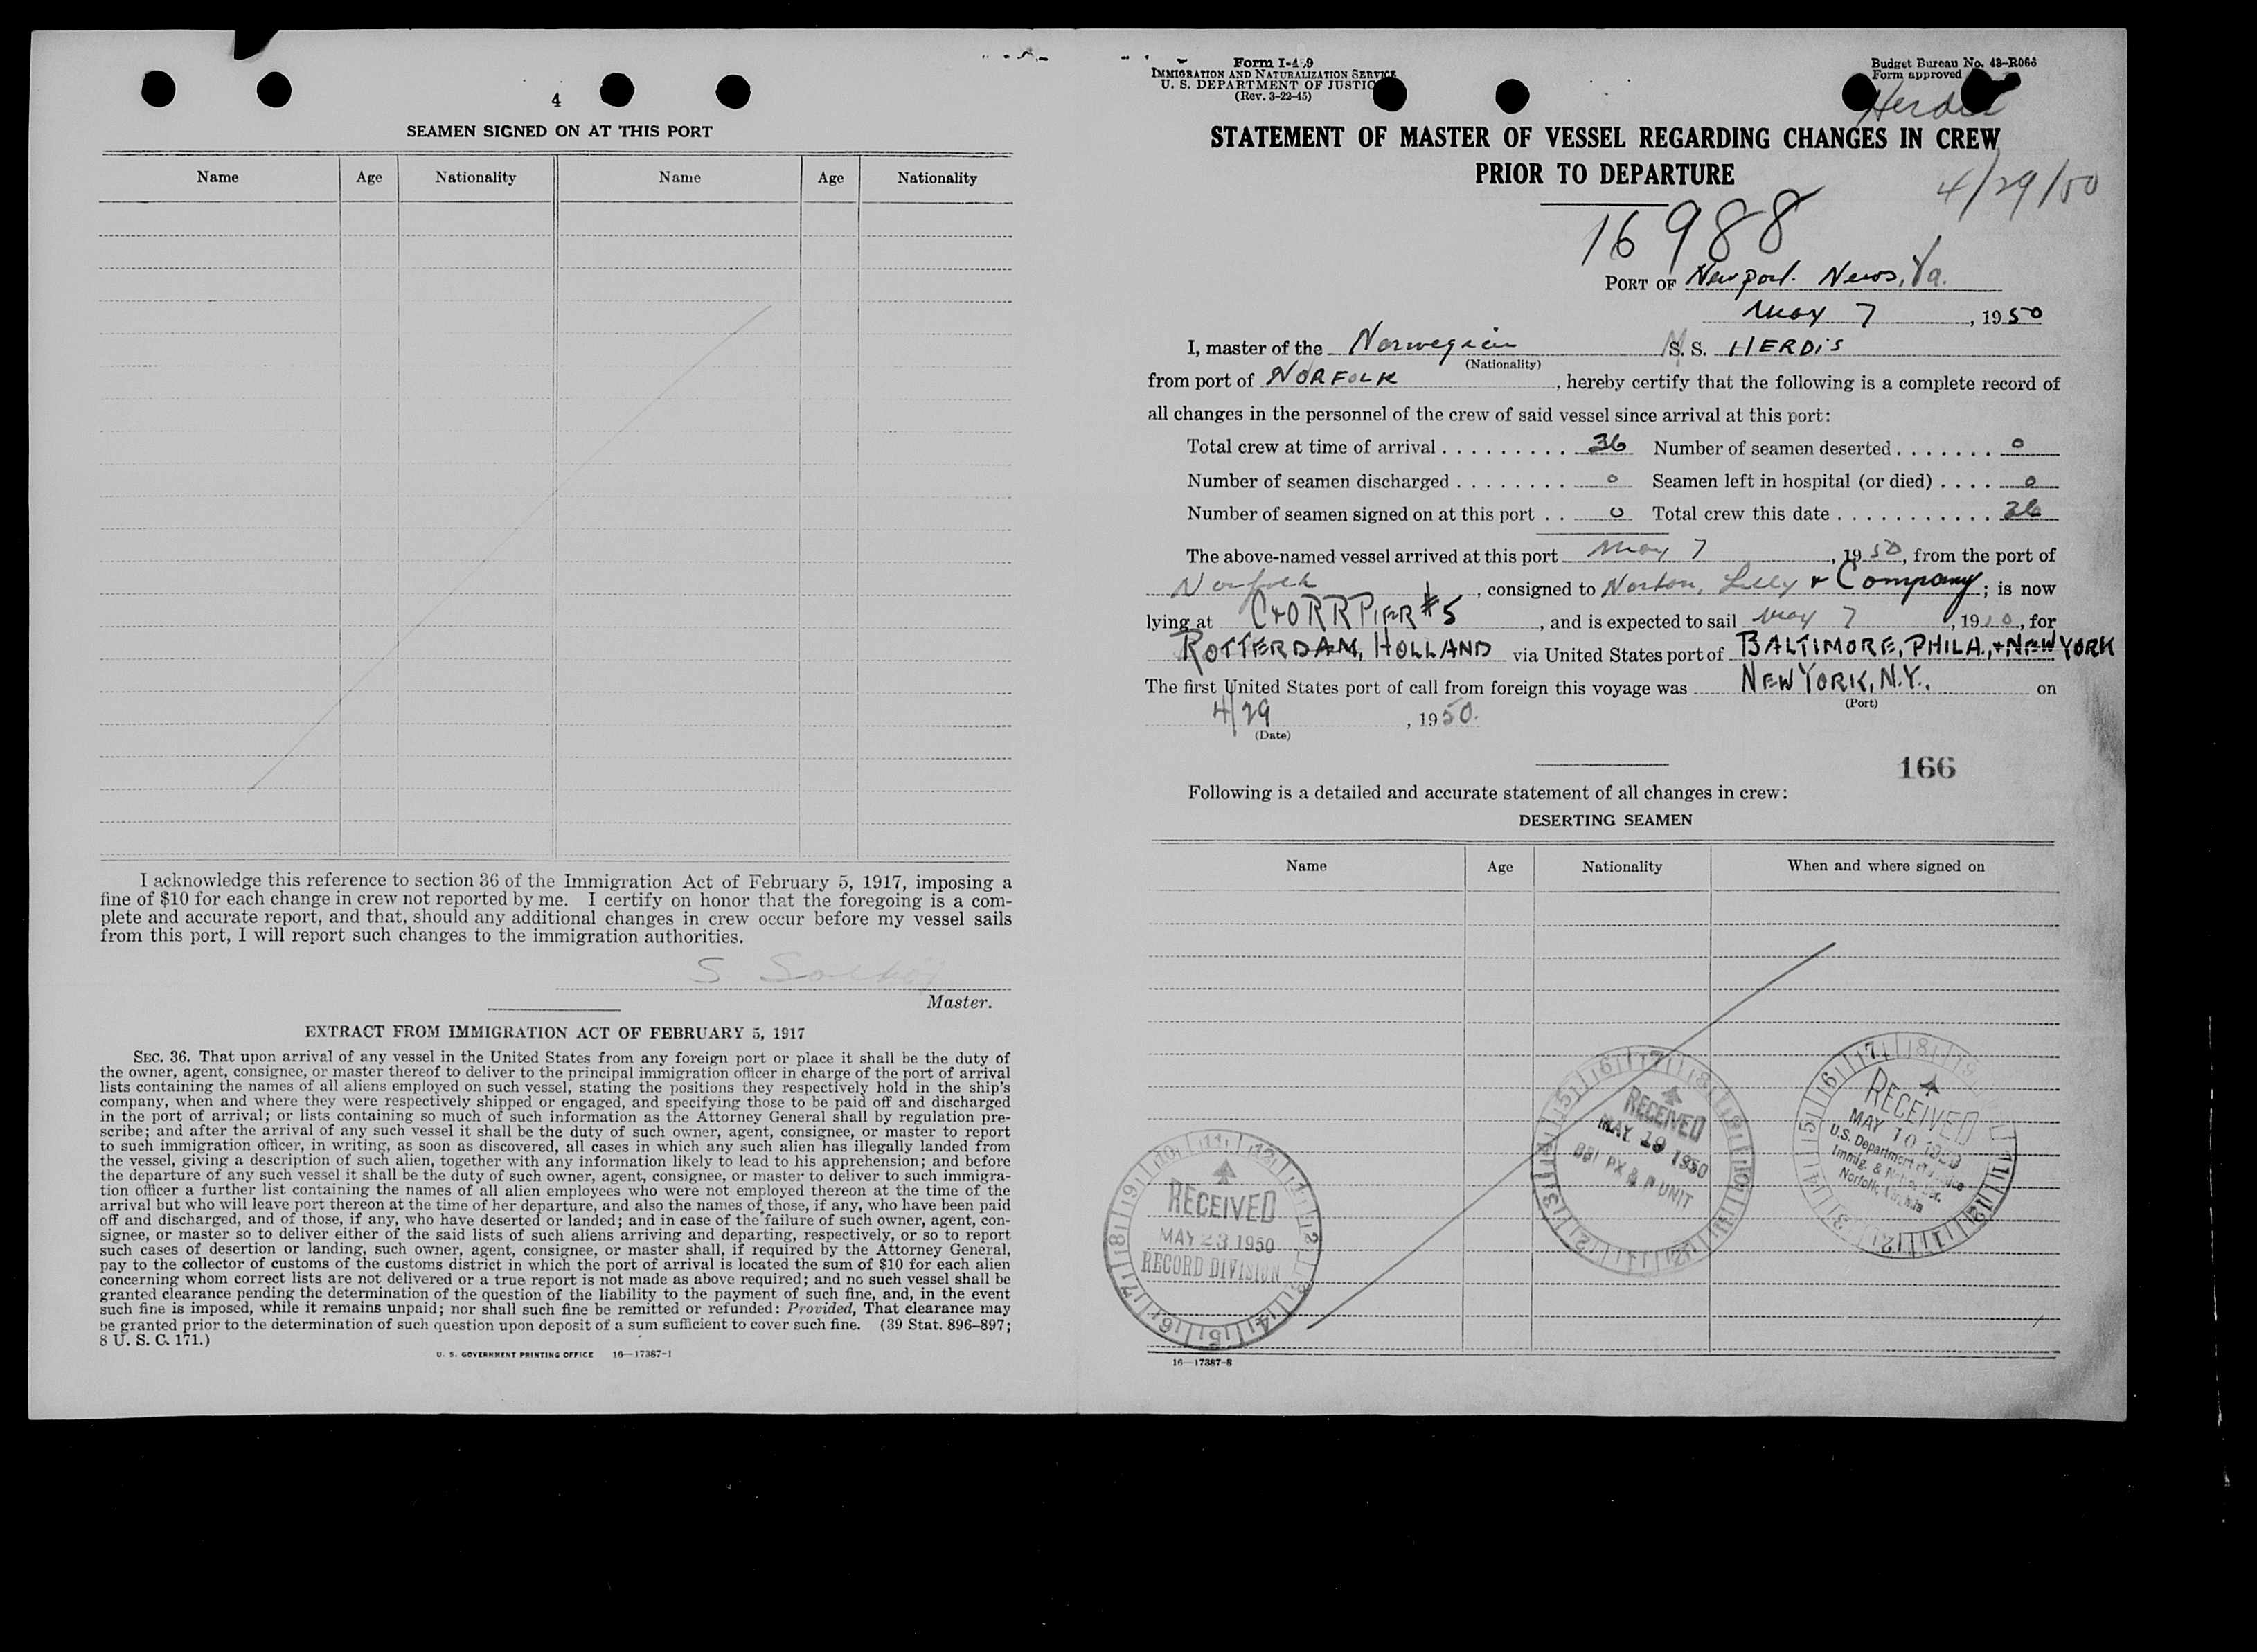 4
SEAMEN SIGNED ON AT THIS PORT
Name Age Nationality Name Age Nationality
I acknowledge this reference to section 36 of the Immigration Act of February 5, 1917, imposing a
fine of $10 for each change in crew not reported by me. I certify on honor that the foregoing is a com-
plete and accurate report, and that, should any additional changes in crew occur before my vessel sails
from this port, I will report such changes to the immigration authorities.
S
Master.
EXTRACT FROM IMMIGRATION ACT OF FEBRUARY 5, 1917
SEC. 36. That upon arrival of any vessel in the United States from any foreign port or place it shall be the duty of
the owner, agent, consignee, or master thereof to deliver to the principal immigration officer in charge of the port of arrival
lists containing the names of all aliens employed on such vessel, stating the positions they respectively hold in the ship's
company, when and where they were respectively shipped or engaged, and specifying those to be paid off and discharged
in the port of arrival; or lists containing so much of such information as the Attorney General shall by regulation pre-
scribe; and after the arrival of any such vessel it shall be the duty of such owner, agent, consignee, or master to report
to such immigration officer, in writing, as soon as discovered, all cases in which any such alien has illegally landed from
the vessel, giving a description of such alien, together with any information likely to lead to his apprehension; and before
the departure of any such vessel it shall be the duty of such owner, agent, consignee, or master to deliver to such immigra-
tion officer a further list containing the names of all alien employees who were not employed thereon at the time of the
arrival but who will leave port thereon at the time of her departure, and also the names of those, if any, who have been paid
off and discharged, and of those, if any, who have deserted or landed; and in case of the failure of such owner, agent, con-
signee, or master so to deliver either of the said lists of such aliens arriving and departing, respectively, or so to report
such cases of desertion or landing, such owner, agent, consignee, or master shall, if required by the Attorney General,
pay to the collector of customs of the customs district in which the port of arrival is located the sum of $10 for each alien
concerning whom correct lists are not delivered or a true report is not made as above required; and no such vessel shall be
granted clearance pending the determination of the question of the liability to the payment of such fine, and, in the event
such fine is imposed, while it remains unpaid; nor shall such fine be remitted or refunded: Provided, That clearance may
be granted prior to the determination of such question upon deposit of a sum sufficient to cover such fine. (39 Stat. 896–897;
8 U. S. C. 171.)
U. S. GOVERNMENT PRINTING OFFICE 16—17387-1
Form
IMMIGRATION AND NATURALIZATION SERVICE
U. S. DEPARTMENT OF JUSTICE
(Rev. 3-22-45)
Budget Bureau No. 43-R066
Form approved
Herdis
STATEMENT OF MASTER OF VESSEL REGARDING CHANGES IN CREW
PRIOR TO DEPARTURE
4/29/50
16988
PORT OF Newport News, Va.
May 7, 1950
I, master of the Norwegian M S. S. HERDIS
(Nationality)
from port of NORFOLK, hereby certify that the following is a complete record of
all changes in the personnel of the crew of said vessel since arrival at this port:
Total crew at time of arrival . . . . . . . . . 36 Number of seamen deserted . . . . . . . 0
Number of seamen discharged . . . . . . . . 0 Seamen left in hospital (or died) . . . . 0
Number of seamen signed on at this port . . 0 Total crew this date . . . . . . . . . . . . 36
The above-named vessel arrived at this port May 7, 1950, from the port of
Norfolk, consigned to Norton, Lilly + Company; is now
lying at C+O RR PIER #5, and is expected to sail May 7, 1950, for
ROTTERDAM, HOLLAND via United States port of BALTIMORE, PHILA., + NEW YORK
The first United States port of call from foreign this voyage was NEW YORK, N.Y., on
(Port)
4/29, 1950.
(Date)
166
Following is a detailed and accurate statement of all changes in crew:
DESERTING SEAMEN
Name Age Nationality When and where signed on
RECEIVED
MAY 23 1950
RECORD DIVISION
RECEIVED
MAY 19 1950
PX & P UNIT
RECEIVED
MAY 10 1950
U.S. Department of Justice
Immig. & Nat. Ser.
Norfolk
16—17387-8